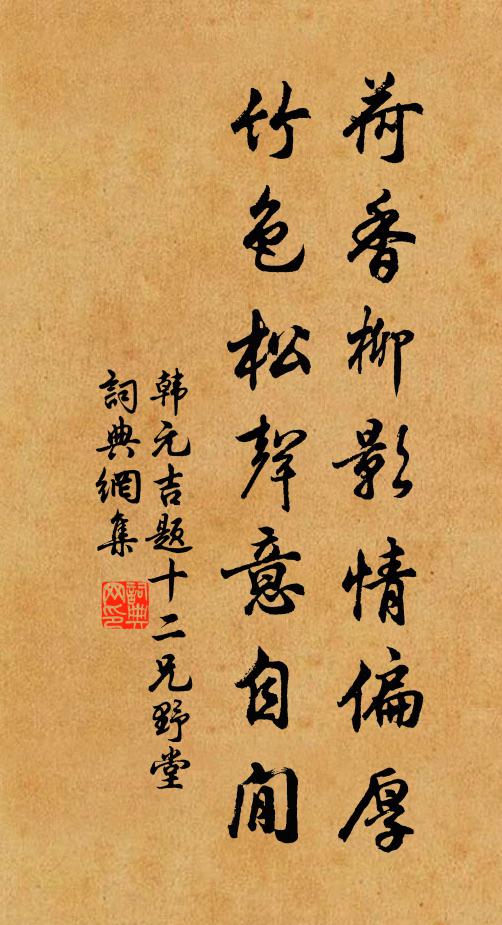 荷香柳影情偏厚
竹色松聲意自閒
韩元吉题十二兄野堂
詞典網集
詞典网印